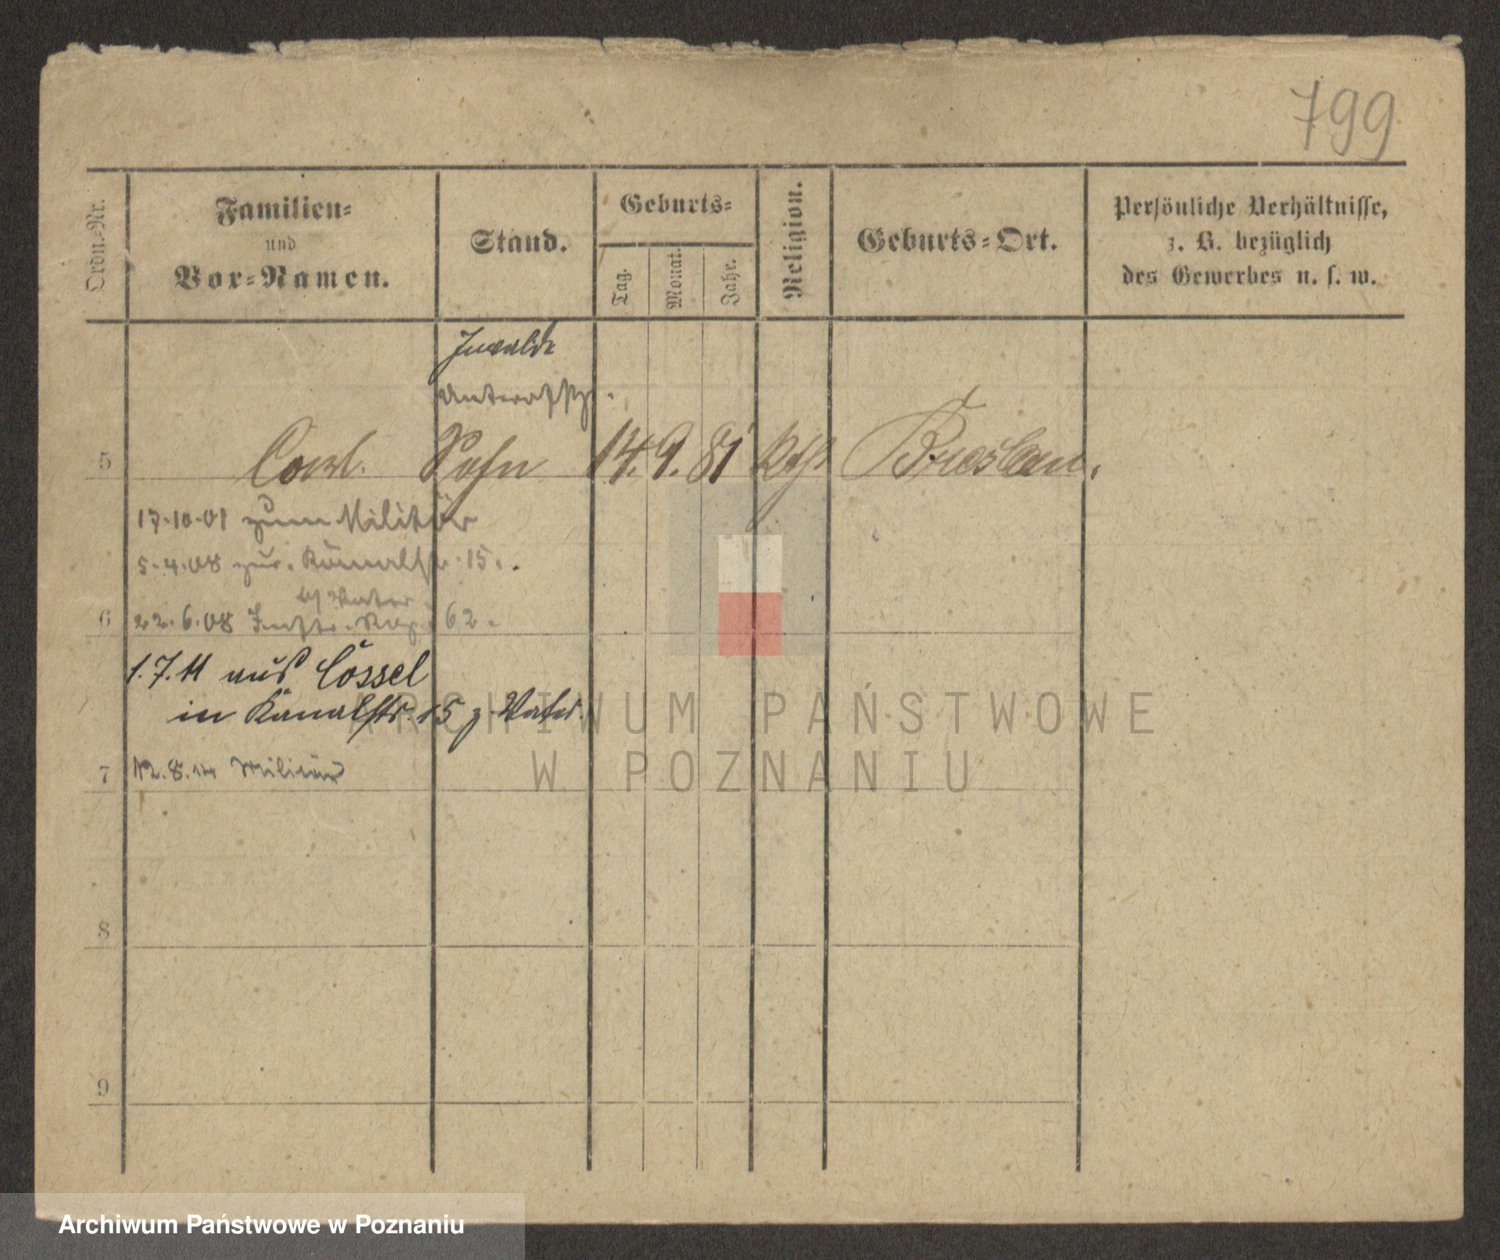 799
Ordn.-Nr.
Familien-
und
Vor-Namen.
Stand.
Geburts-
Tag.
Monat.
Jahr.
Religion.
Geburts-Ort.
Persönliche Verhältnisse,
z. B. bezüglich
des Gewerbes u. s. w.
Invalide
Unteroffz.
5 Carl Sohn 14. 9. 81 kth Breslau.
17.10.01 zum Militär
5.4.08 zur. Kanalstr. 15.
b/ Vater
6 22.6.08 62.
1.7.11 aus Cossel
in Kanalstr. 15 z. Vater.
7 12.8.14 Militär
8
9
ARCHIWUM PAŃSTWOWE
W POZNANIU
Archiwum Państwowe w Poznaniu